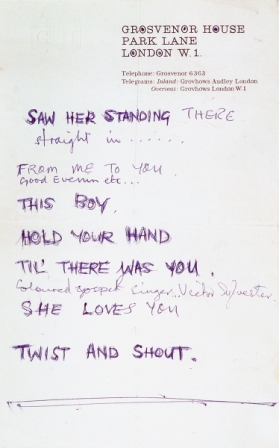 GROSVENOR HOUSE
PARK LANE
LONDON W.1.
Telephone: Grosvenor 6363
Telegrams: Inland: Grovhows Audley London
Overseas: Grovhows London W.1
SAW HER STANDING THERE
straight in ......
FROM ME TO YOU
Good Evenin etc...
THIS BOY.
HOLD YOUR HAND
TIL' THERE WAS YOU.
Coloured gospel singer... Victor Sylvester
SHE LOVES YOU
TWIST AND SHOUT.